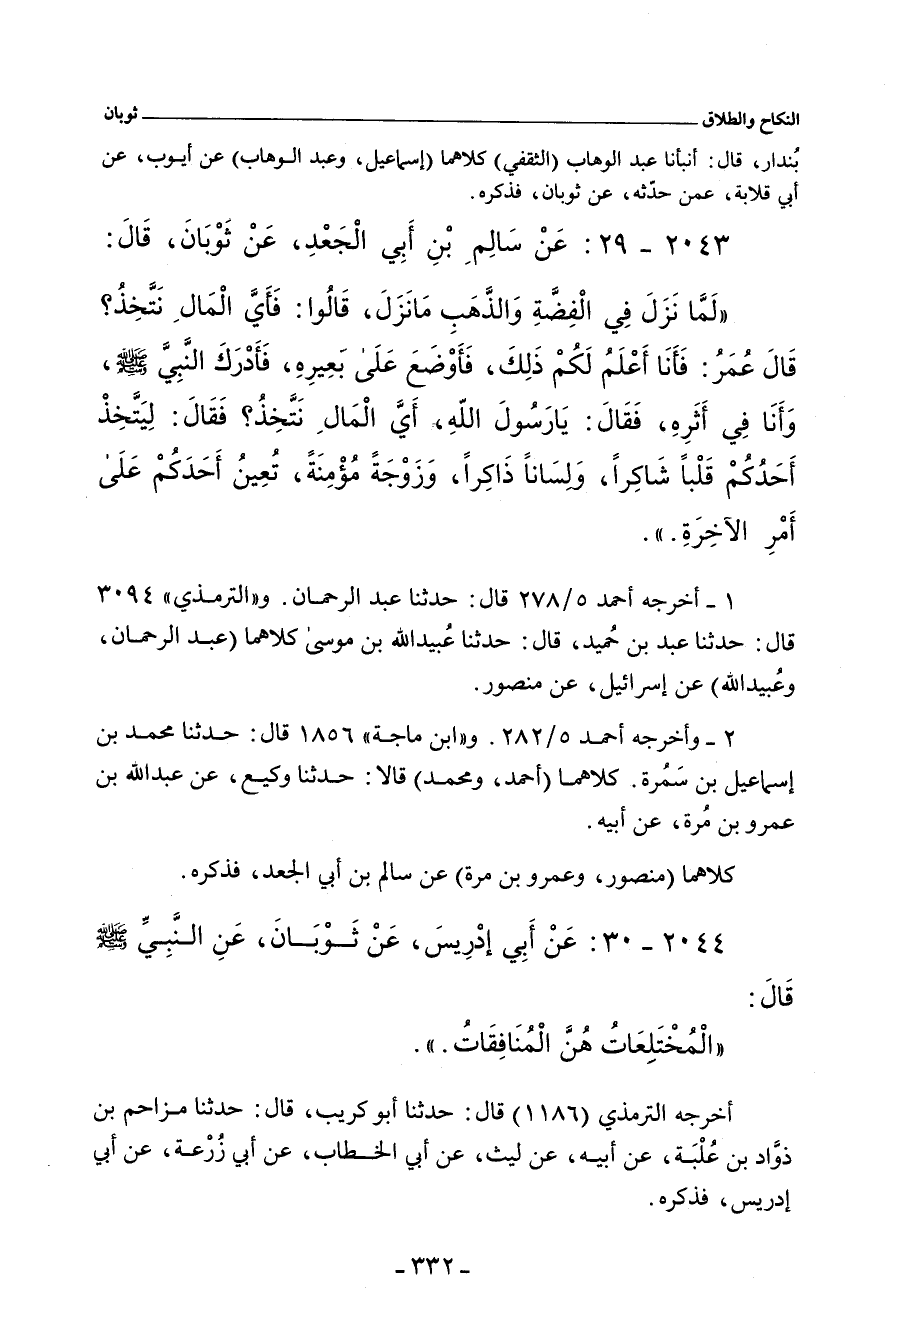 النكاح والطلاق ثوبان
بُندار، قال: أنبأنا عبد الوهاب (الثقفي) كلاهما (إسماعيل، وعبد الوهاب) عن أيوب، عن
أبي قلابة، عمن حدّثه، عن ثوبان، فذكره.
٢٠٤٣ - ٢٩ : عَنْ سَالِمِ بْنِ أَبِي الْجَعْدِ، عَنْ ثَوْبَانَ، قَالَ:
«لَمَّا نَزَلَ فِي الْفِضَّةِ وَالذَّهَبِ مَانَزَلَ، قَالُوا: فَأَيَّ الْمَالِ نَتَّخِذُ؟
قَالَ عُمَرُ: فَأَنَا أَعْلَمُ لَكُمْ ذَلِكَ، فَأَوْضَعَ عَلَىٰ بَعِيرِهِ، فَأَدْرَكَ النَّبِيَّ ﷺ،
وَأَنَا فِي أَثَرِهِ، فَقَالَ: يَارَسُولَ اللهِ، أَيَّ الْمَالِ نَتَّخِذُ؟ فَقَالَ: لِيَتَّخِذْ
أَحَدُكُمْ قَلْباً شَاكِراً، وَلِسَاناً ذَاكِراً، وَزَوْجَةً مُؤْمِنَةً، تُعِينُ أَحَدَكُمْ عَلَىٰ
أَمْرِ الآخِرَةِ.».
١ - أخرجه أحمد ٢٧٨/٥ قال: حدثنا عبد الرحمان. و«الترمذي» ٣٠٩٤
قال: حدثنا عبد بن حُميد، قال: حدثنا عُبيدالله بن موسىٰ كلاهما (عبد الرحمان،
وعُبيدالله) عن إسرائيل، عن منصور.
٢ - وأخرجه أحمد ٢٨٢/٥ . و«ابن ماجة» ١٨٥٦ قال: حدثنا محمد بن
إسماعيل بن سَمُرة. كلاهما (أحمد، ومحمد) قالا: حدثنا وكيع، عن عبدالله بن
عمرو بن مُرة، عن أبيه.
كلاهما (منصور، وعمرو بن مرة) عن سالم بن أبي الجعد، فذكره.
٢٠٤٤ - ٣٠: عَنْ أَبِي إِدْرِيسَ، عَنْ ثَوْبَانَ، عَنِ النَّبِيِّ ﷺ
قَالَ:
«الْمُخْتَلِعَاتُ هُنَّ الْمُنَافِقَاتُ.».
أخرجه الترمذي (١١٨٦) قال: حدثنا أبو كريب، قال: حدثنا مزاحم بن
ذوَّاد بن عُلْبَة، عن أبيه، عن ليث، عن أبي الخطاب، عن أبي زُرْعة، عن أبي
إدريس، فذكره.
- ٣٣٢ -